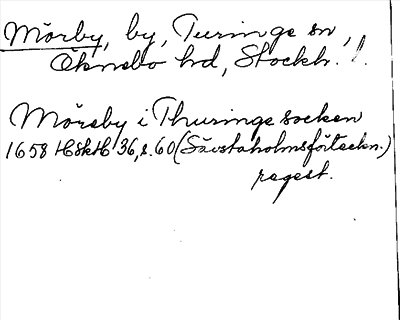 Mörby, by, Turinge sn,
Öknebo hd, Stockh. l.
Möreby i Thuringe socken
1658 HSkH 36, s. 60 (Sävstaholmsförteckn.)
regest.